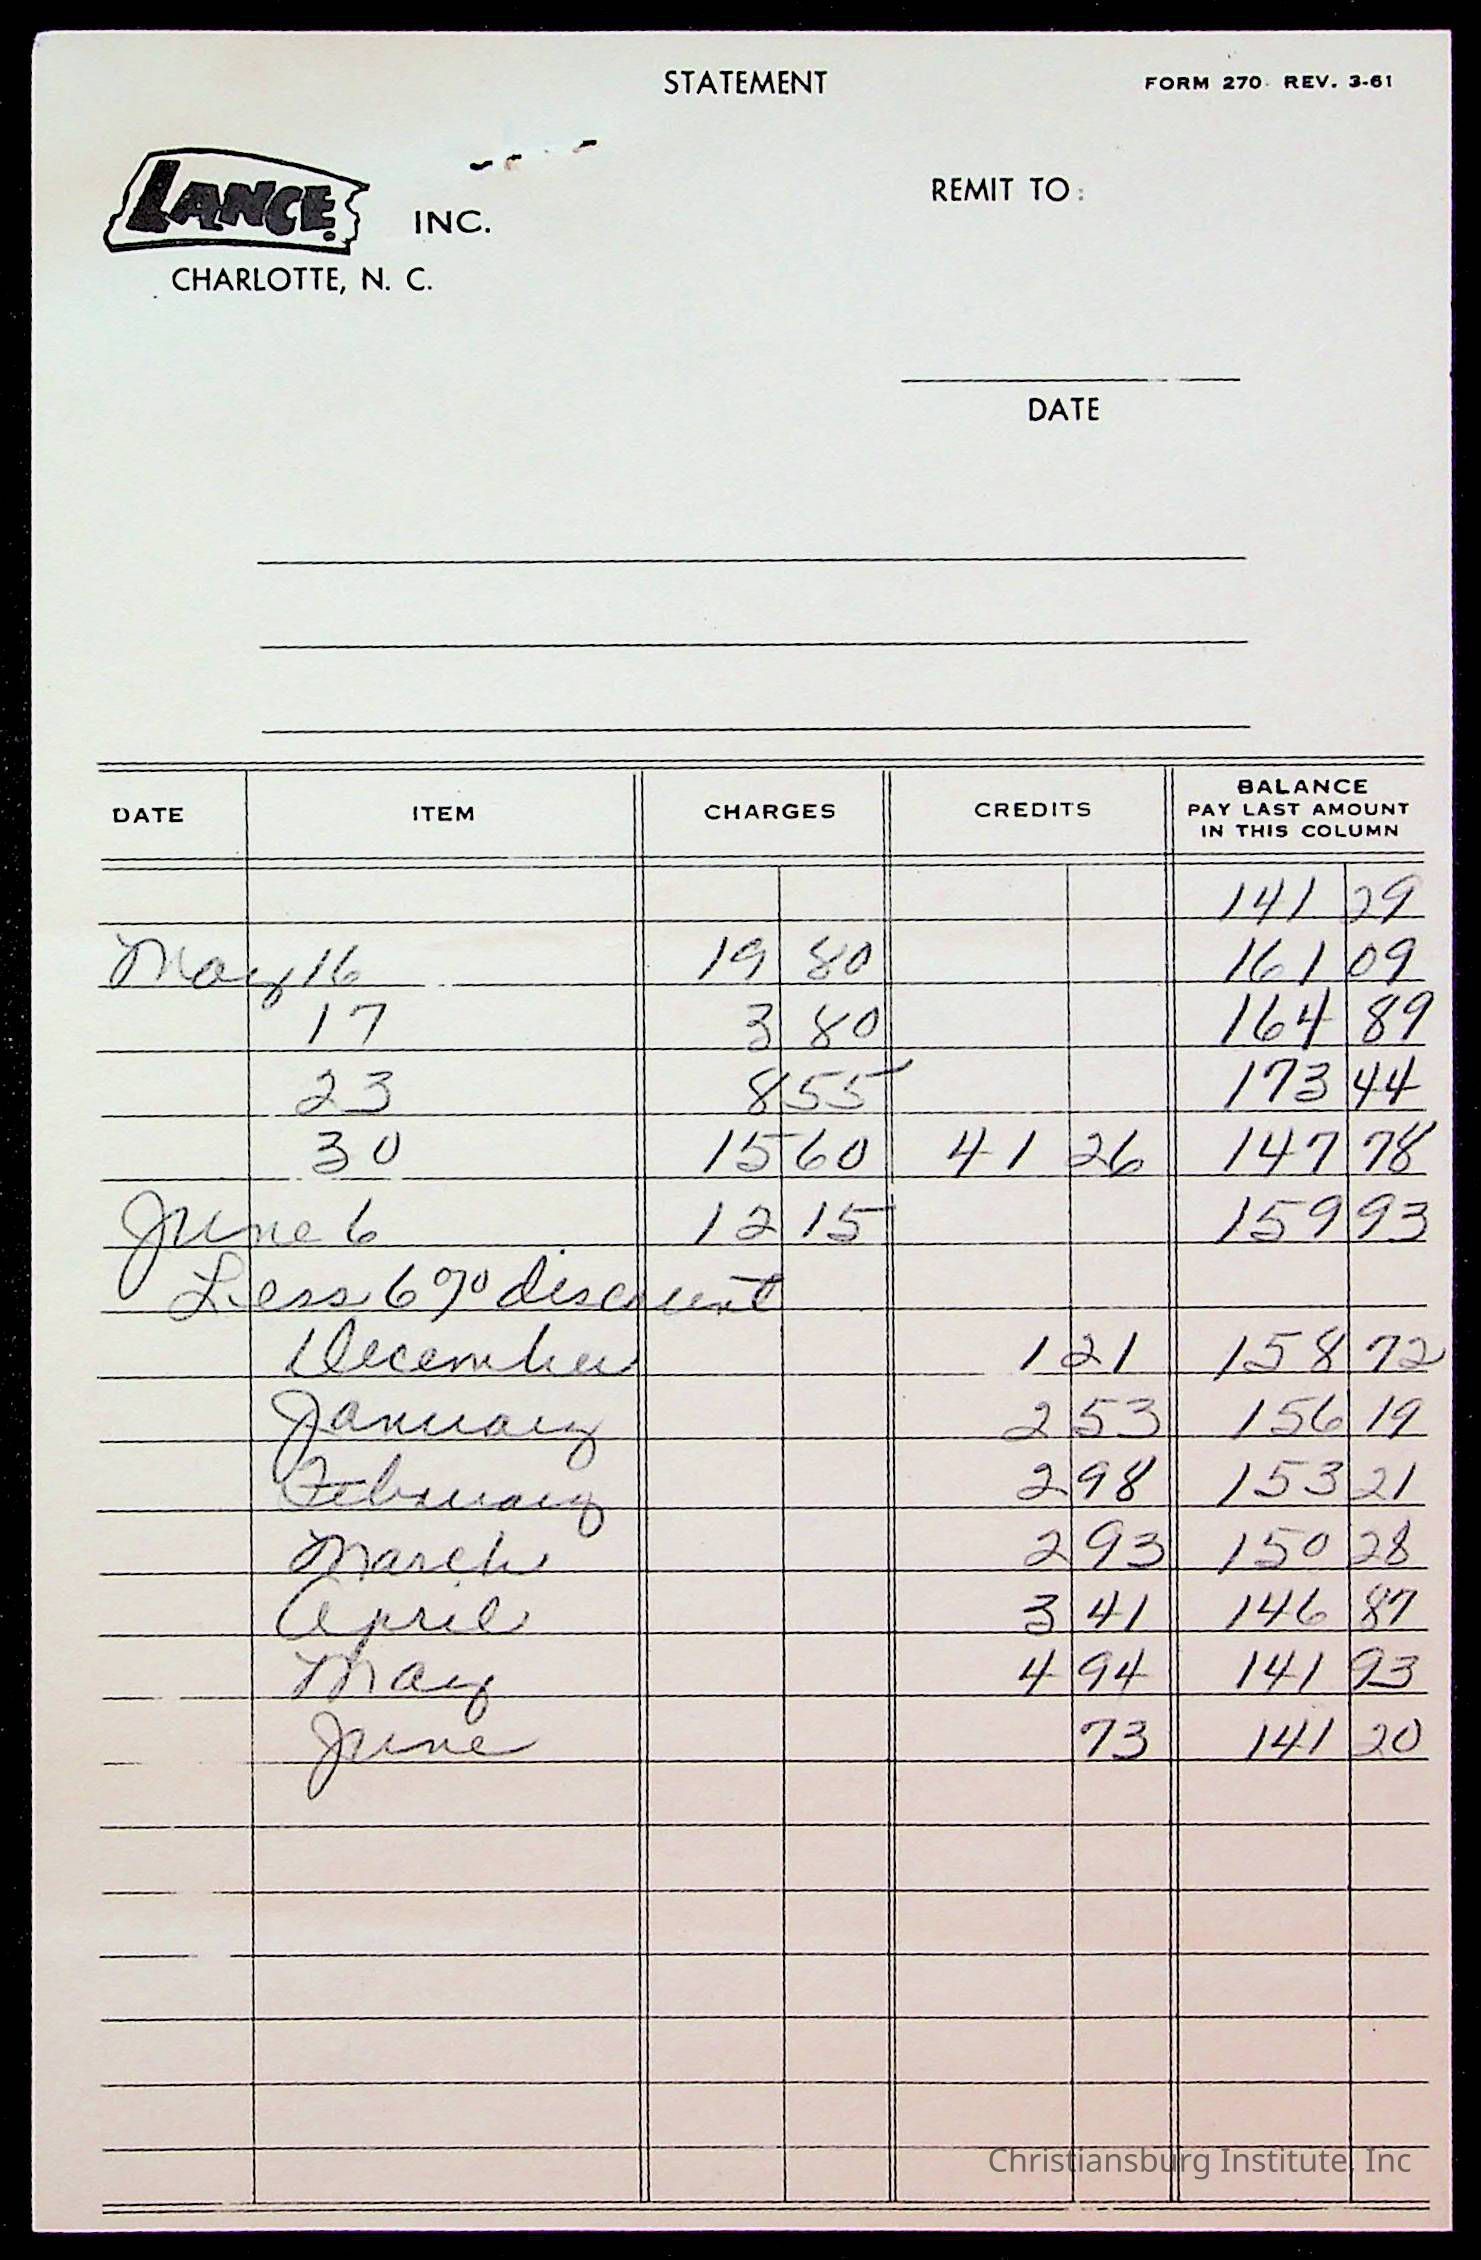 STATEMENT
FORM 270 REV. 3-61
LANCE. INC.
REMIT TO:
CHARLOTTE, N. C.
DATE
DATE ITEM CHARGES CREDITS BALANCE PAY LAST AMOUNT IN THIS COLUMN
141 29
May 16 19 80 161 09
17 3 80 164 89
23 8 55 173 44
30 15 60 41 26 147 78
June 6 12 15 159 93
Less 6% discount
December 1 21 158 72
January 2 53 156 19
February 2 98 153 21
March 2 93 150 28
April 3 41 146 87
May 4 94 141 93
June 73 141 20
Christiansburg Institute, Inc